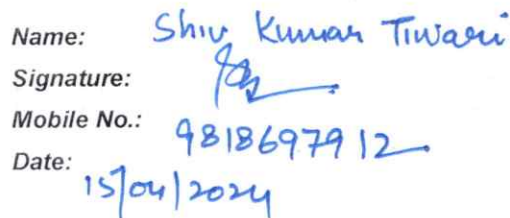 Name: Shiv Kumar Tiwari
Signature:
Mobile No.: 9818697912
Date: 15/04/2024